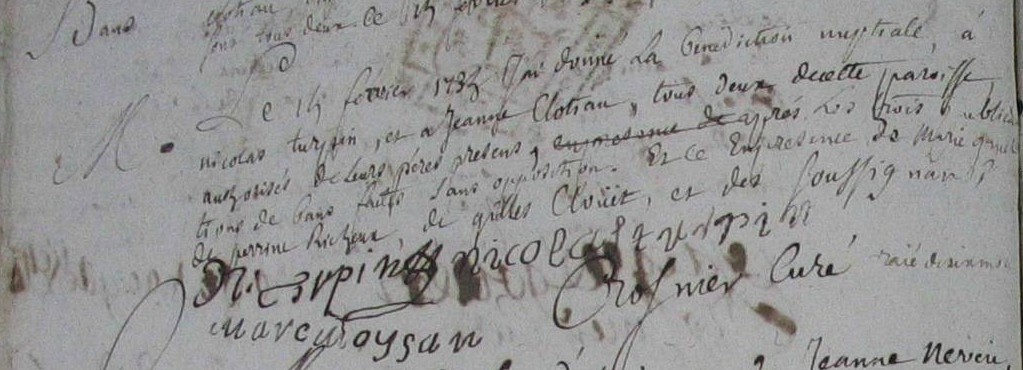 Bans
tous deux ce
M. Le 14 février 1735 J'ai donné La benediction nuptiale, à
nicolas turpin, et a Jeanne Clotiau, tous deux decette paroisse
authorisés de Leurs péres presens, enpresence de après Les trois publica
tions de bans faits Sans opposition. Et ce Enpresence de Marie
de perrine Richeux, de gilles Cloüet, et des Soussignans
N. turpin nicolas turpin
Crosnier Curé
marc loysan
Jeanne